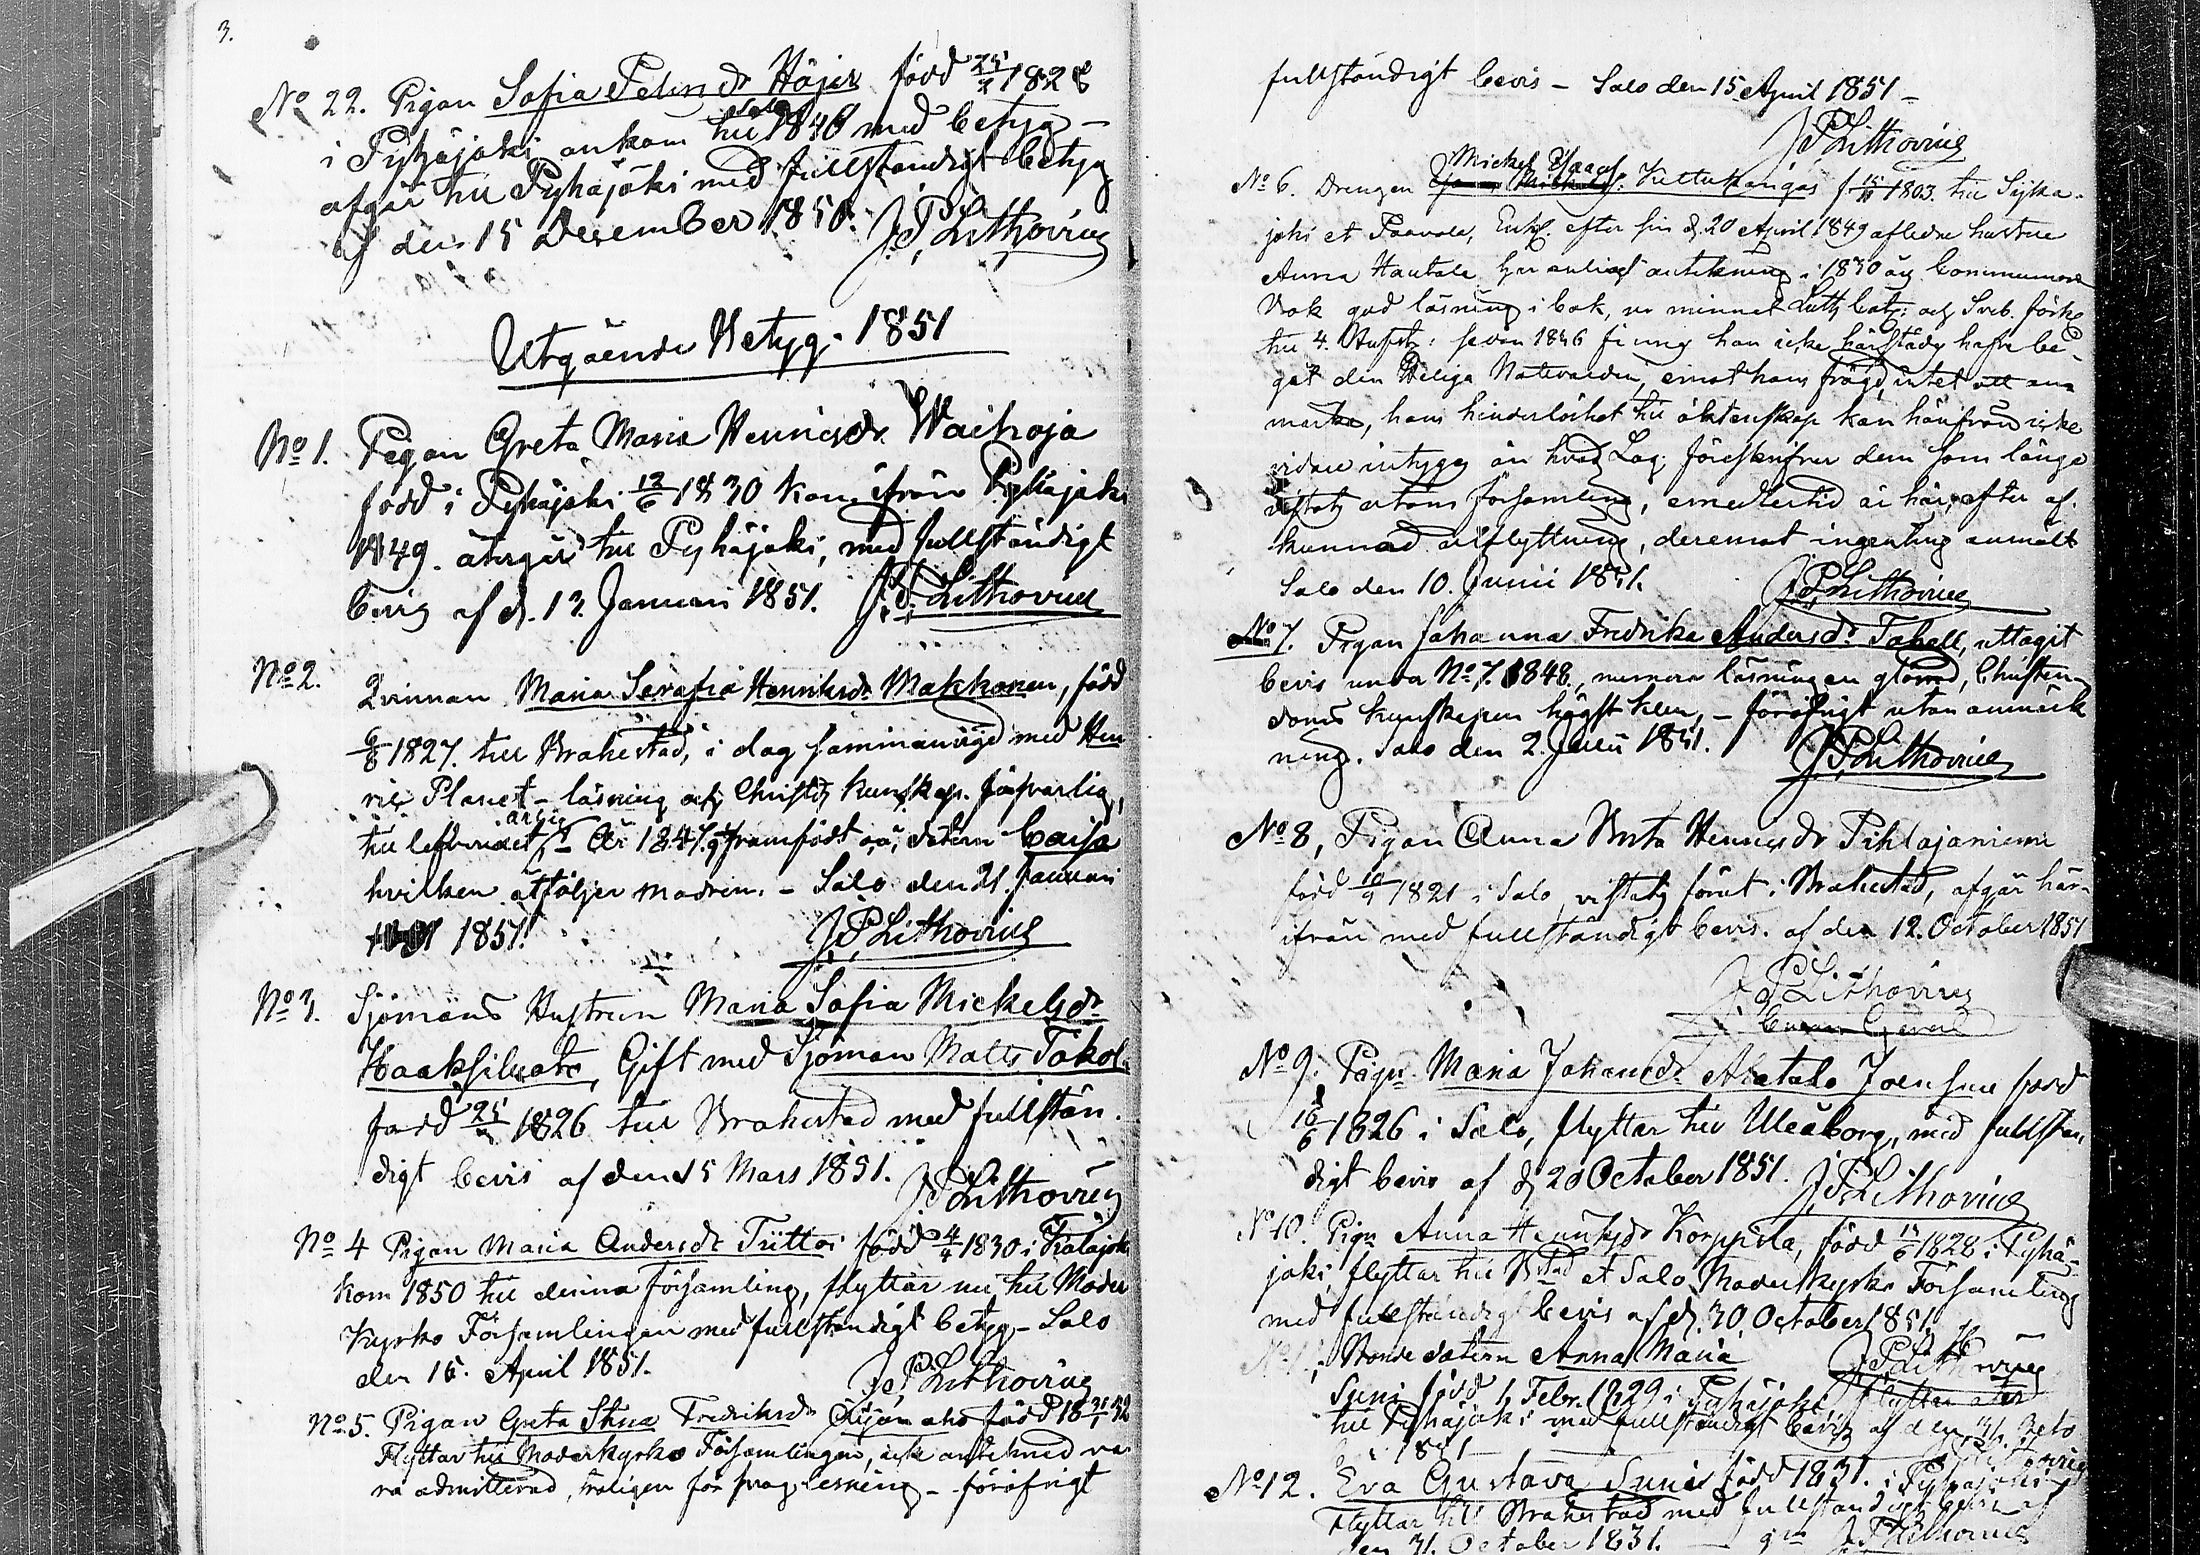 3.
No 22. Pigan Sofia Petersdr Höjer född 25/2 1828
i Pyhäjoki ankom till Salo 1848 med betyg –
afgår till Pyhäjoki med fullständigt betyg
af den 15 December 1850. J. P. Lithovius
Utgående Betyg. 1851
No 1. Pigan Greta Maria Henricsdr. Waihoja
född i Pyhäjoki 12/6 1830 kom ifrån Pyhäjoki
1849. återgår till Pyhäjoki, med fullständigt
bevis af d. 13 Januari 1851. J. P. Lithovius
No 2. Qvinnan Maria Serafia Henriksdr Makkonen, född
1827. till Brahestad, i dag sammanvigd med Hen
ric Planet – läsning och Christd. kunskap försvarlig,
till lefvernet ärlig År 1847. framfödt oä. dottern Caisa
hvilken åtföljer modren. – Salo den 21. Januari
1851. J. P. Lithovius
No 3. Sjömans Hustrun Maria Sofia Mickelsdr
Haaksiluoto, Gift med Sjöman Matts Tokol.
född 25 1826 till Brahestad med fullstän
digt bevis af den 15 Mars 1851. J. P. Lithovius
No 4 Pigan Maria Andersdr Tiitto född 4/4 1830 i Kalajok
kom 1850 till denna församling, flyttar nu till Moder
Kyrko Församlingen med fullständigt betyg – Salo
den 15. April 1851. J. P. Lithovius
No 5. Pigan Greta Stina Fredriksdr född 18 31/1 32
Flyttar till Moderkyrko Församlingen, icke antecknad va
ra admitterad, troligen för svag läsning – föröfrigt
fullständigt bevis – Salo den 15 April 1851 –
J. P. Lithovius
No 6. Drengen Mickel Isaacs. Kultukangas f. 15 1803. till Sijka-
joki et Paavola, Enkl. efter sin d. 20 April 1849 aflidna hustru
Anna Hautala har enligt antekning i 1830 års Communion
Bok god läsning i bok, ur minnet Luth. Cat. och Sveb. förkl
till 4. Hufvst: sedan 1846 finnes han icke härstädes hafva be-
gått den Heliga Nattvarden, emot hans frägd intet att an
märka, hans hinderlöshet till äktenskap kan härifrån icke
vidare intygas än hvad Lag föreskrifver dem som länge
vistats utom församling, emedlertid är här, efter af-
kunnad utflyttning, deremot ingenting anmält
Salo den 10. Junii 1851. J. P. Lithovius
No 7. Pigan Johanna Fredrika Andersdr Tokoll, uttagit
bevis under No 7. 1848., numera läsningen glömd, Christen
doms kunskapen högst klen, – föröfrigt utan anmärk
ning. Salo den 2. Julii 1851. J. P. Lithovius
No 8, Pigan Anna Brita Henricsdr Pihlajaniemi
född 10/4 1821 i Salo, vistats förut i Brahestad, afgår här-
ifrån med fullständigt bevis. af den 12. October 1851
J. P. Lithovius
No 9. Pigan Maria Johansdr Alatalo Joensuu född
16/6 1826 i Salo, flyttar till Uleåborg, med fullstän
digt bevis af d. 20 October 1851. J. P. Lithovius
No 10. Pigan Anna Henricsdr Korppila, född 1828 i Pyhä-
joki, flyttar till Bstad et Salo Moderkyrko Församling
med fullständigt bevis af d. 30. October 1851.
J. P. Lithovius
Bonde dotern Anna Maria
Suni född 1 Febr. 1829 i Pyhäjoki, flyttar åter
till Pyhäjoki med fullständigt bevis af den 31. Octo
1851 Lithovius
No 12. Eva Gustava Suni född 1831. i Pyhäjoki
Flyttar till Brahestad med fullständigt bevis af
den 31. October 1851. J. P. Lithovius